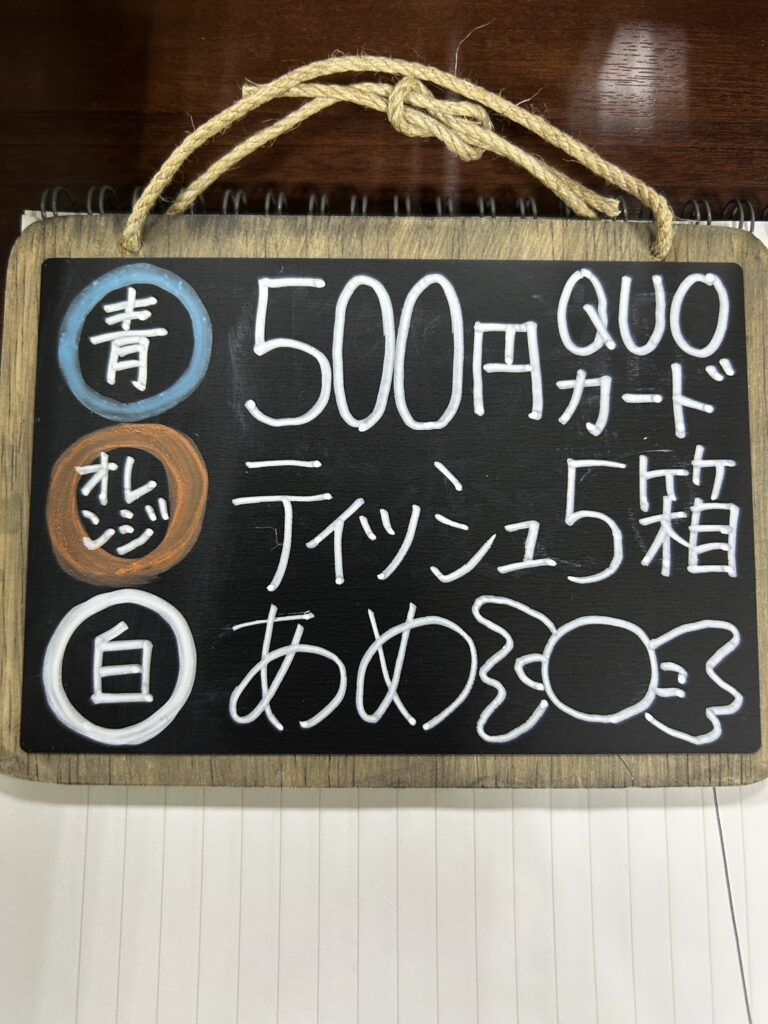 青 500円 QUOカード
オレンジ ティッシュ5箱
白 あめ